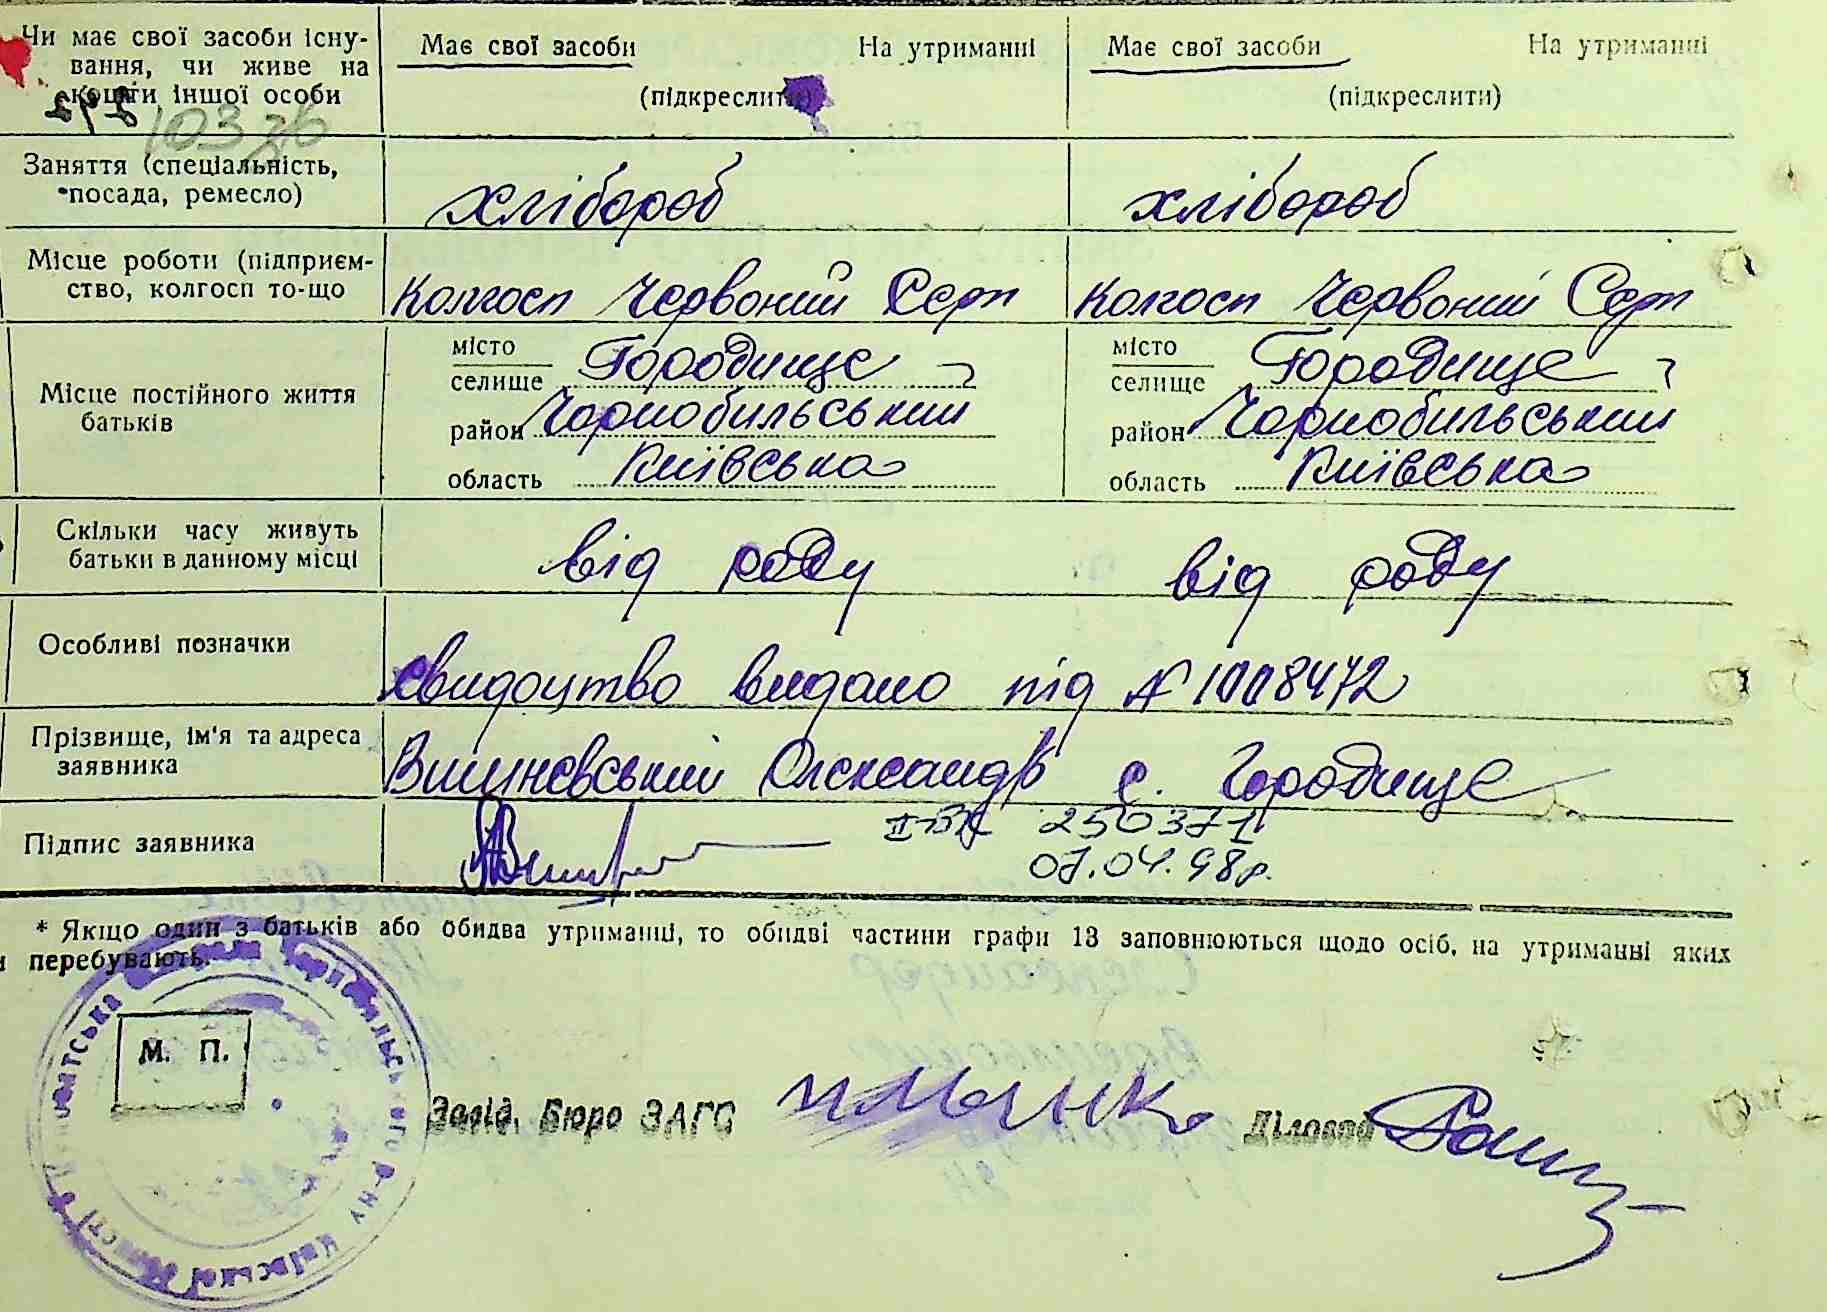 Чи має свої засоби існу- Має свої засоби На утриманні Має свої засоби На утриманні
вання, чи живе на
кошти іншої особи (підкреслити) (підкреслити)
Заняття (спеціальність,
посада, ремесло) хлібороб хлібороб
Місце роботи (підприєм-
ство, колгосп то-що Колгосп Червоний Серп Колгосп Червоний Серп
місто місто
селище Городище селище Городище
Місце постійного життя
батьків район Чорнобильський район Чорнобильський
область Київська область Київська
Скільки часу живуть
батьки в данному місці від роду від роду
Особливі позначки свидоцтво видано під № 1008472
Прізвище, ім'я та адреса
заявника Вишневський Олександр с. Городище
Підпис заявника 250371
07.04.98р.
* Якщо один з батьків або обидва утриманці, то обидві частини графи 13 заповнюються щодо осіб, на утриманні яких
перебувають.
М. П.
Завід. Бюро ЗАГС Діловод